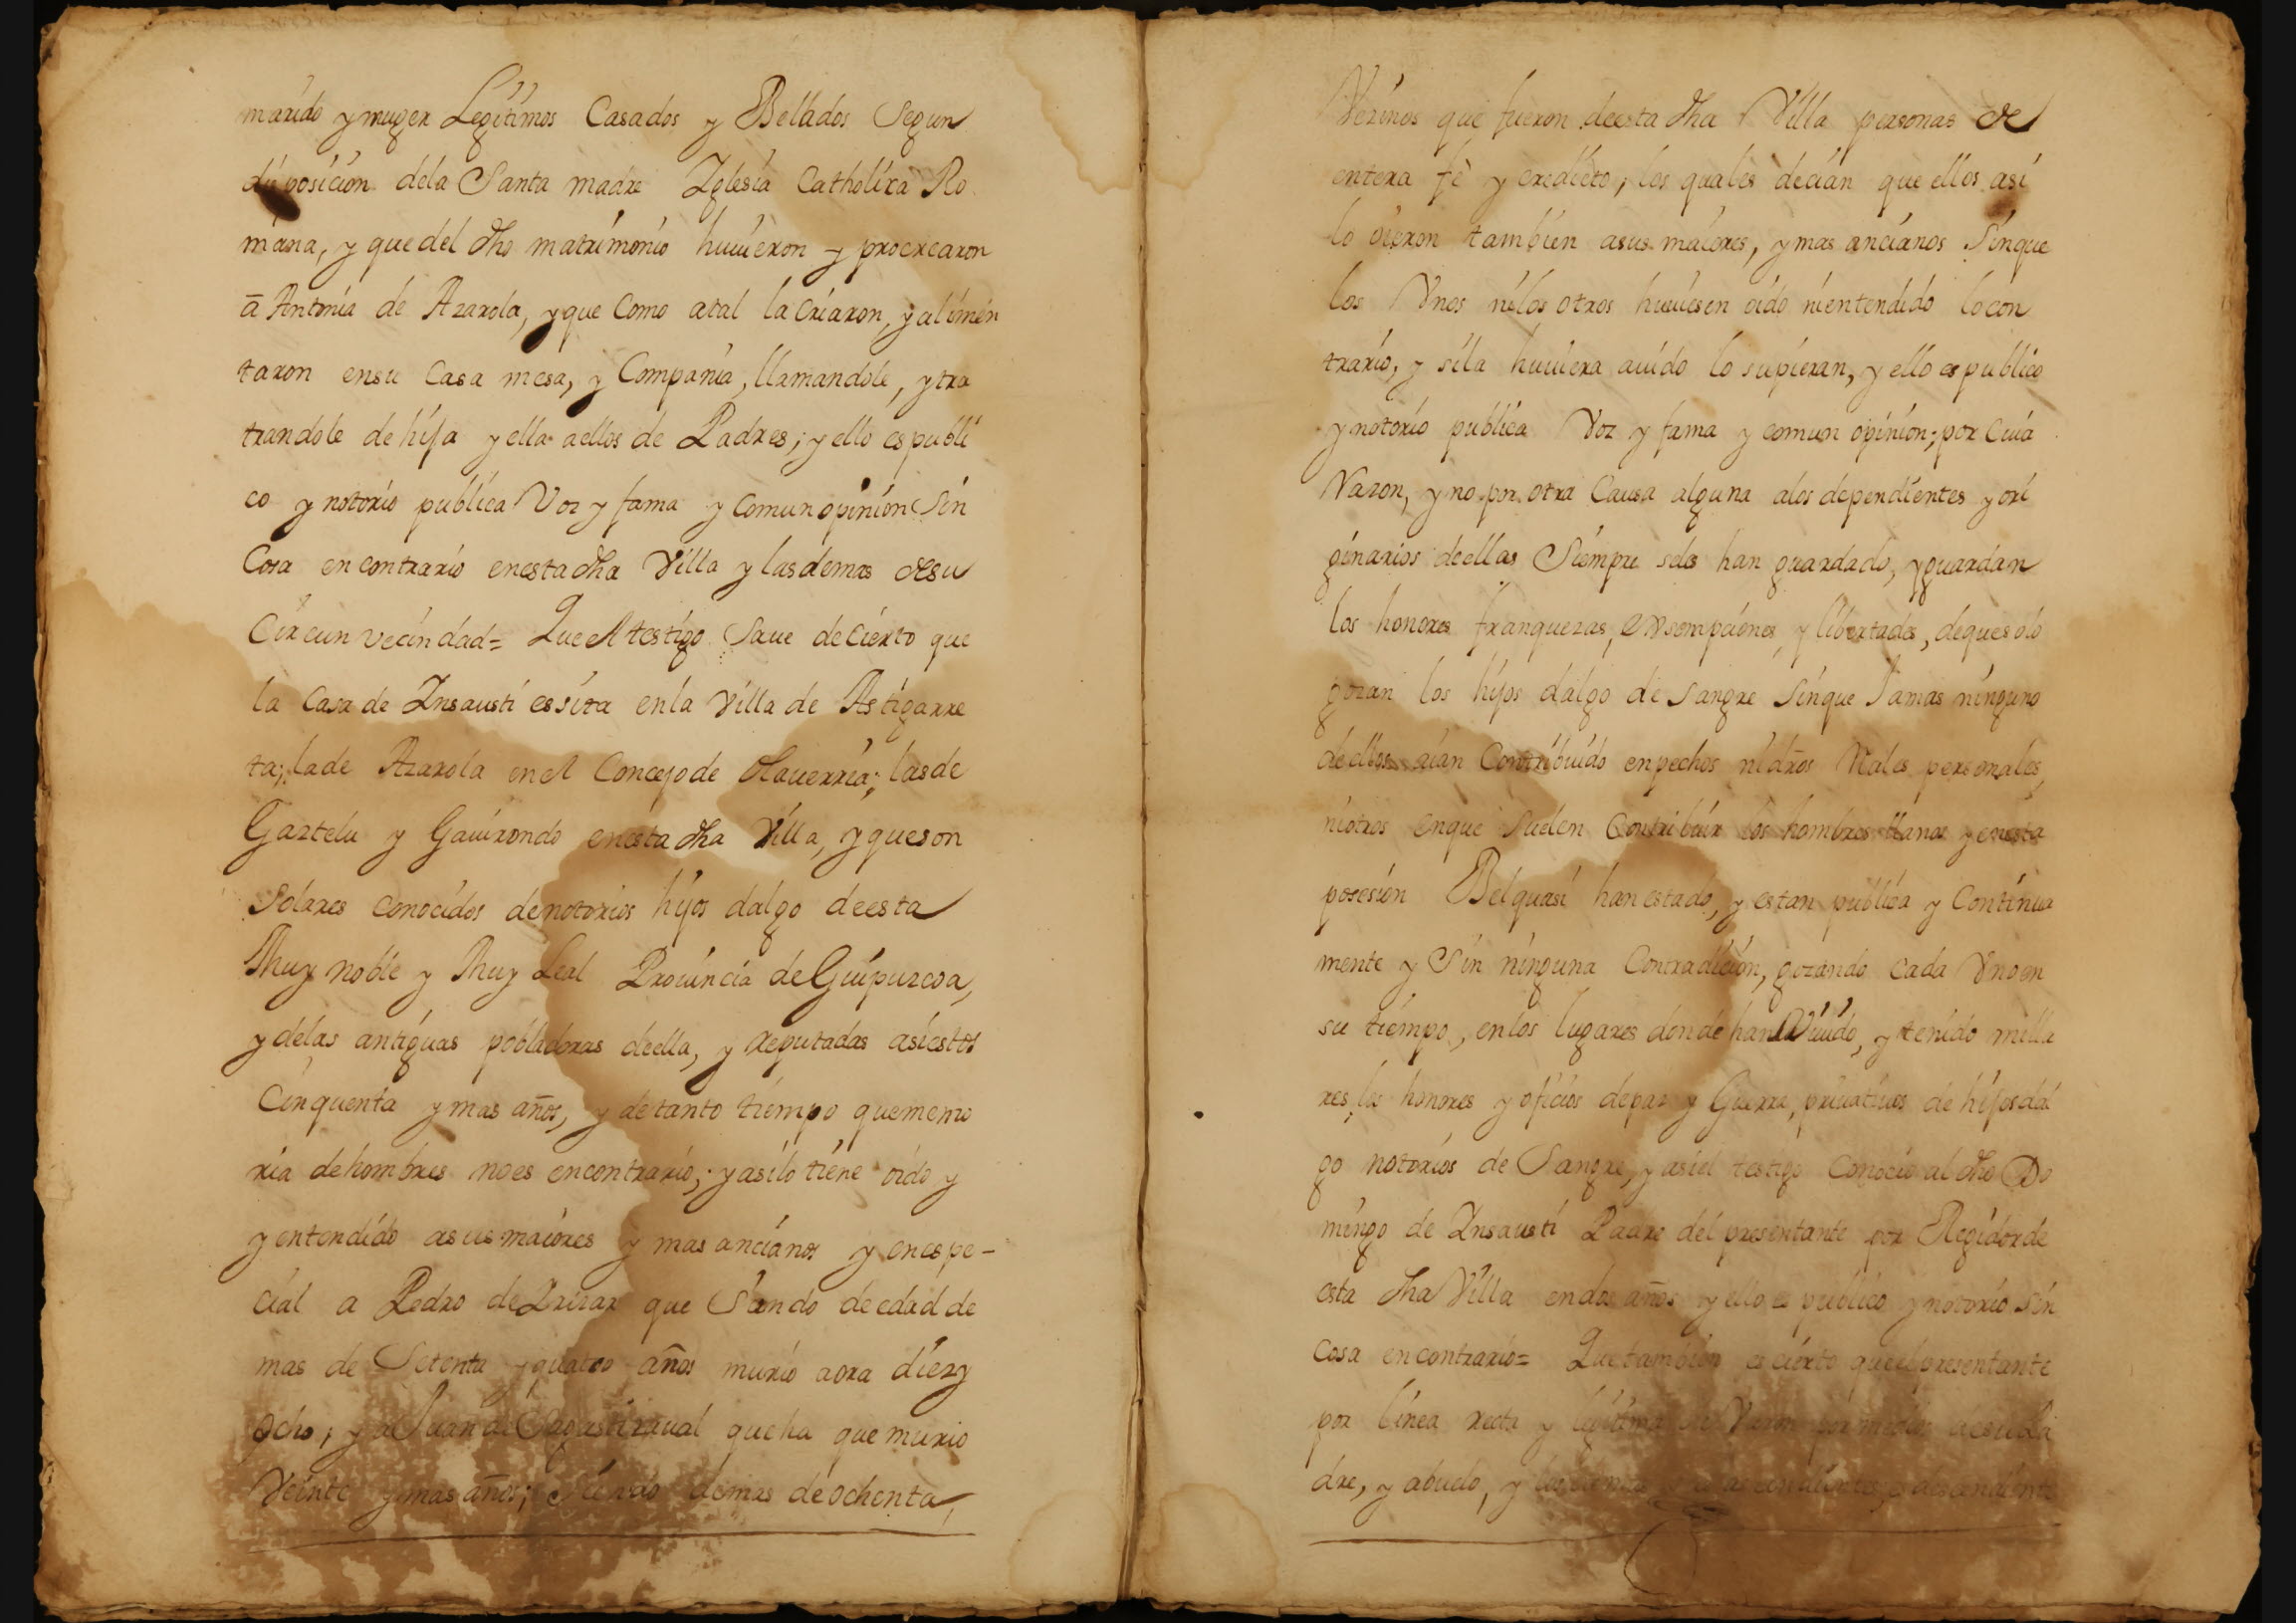 marido y muger Legitimos Casados y Bellados Segun
disposicion dela Santa madre Yglesia Catholica Ro
mana, y que del dho matrimonio huuieron y procrearon
a Antonia de Azarola, y que Como atal la Criaron, y alimen
taron ensu Casa mesa, y Compañia, llamandole, y tra
trandole de hija y ella aellos de Padres; y ello es publi
co y notorio publica Voz y fama y Comun opinion Sin
Cosa en contrario enesta dha Villa y las demas desu
Circun vecindad= Que el testigo Saue de Cierto que
la Casa de Ynsausti es sita en la Villa de Astigarre
ta; la de Azarola en el Concejo de Olauerria; las de
Gaztelu y Gauirondo enesta dha Villa, y que son
Solares conocidos de notorios hijos dalgo de esta
Muy noble y Muy Leal Prouincia de Guipuzcoa,
y delas antiguas pobladoras de ella, y reputadas asi estos
Cinquenta y mas años, y de tanto tiempo que memo
ria de hombres no es encontrario; y asilo tiene oido y
y entendido asus maiores y mas ancianos y en espe-
cial a Pedro de Yrizar que Siendo de edad de
mas de Setenta y quatro años murio aora diez y
Ocho; y a Juan de Sagastizaual que ha que murio
Veinte y mas años; Siendo demas de ochenta,
Vezinos que fueron de esta dha Villa personas de
entera fè y credicto; los quales decian que ellos asi
lo oieron tambien asus maiores, y mas ancianos Sinque
los Vnos nilos otros huuiesen oido ni entendido lo con
trario, y sila huuiera auido lo supieran, y ello es publico
y notorio publica Voz y fama y comun opinion; por Cuia
Razon, y no por otra Causa alguna alos dependientes y ori
ginarios de ellas Siempre seles han guardado, y guardan
los honores franquezas, exsempciones, y libertades, de que solo
gozan los hijos dalgo de sangre Sinque Jamas ninguno
de ellos aian Contribuido en pechos ni dros Reales personales,
ni otros en que Suelen Contribuir los hombres llanos y en esta
posesion Belquasi han estado, y estan publica y Continua
mente y Sin ninguna Contradicion, gozando Cada Vno en
su tiempo, en los lugares donde han Viuido, y tenido milla
res, los honores y oficios de paz y Guerra, priuatiuos de hijos dal
go notorios de Sangre, y asi el testigo Conocio al dho Do
mingo de Ynsausti Padre del presentante por Regidor de
esta dha Villa en dos años y ello es publico y notorio Sin
Cosa en contrario= Que tambien es cierto que el presentante
por linea recta y legitima de Varon por medio de su Pa
dre, y abuelo, y los demas ascendientes, es descendiente